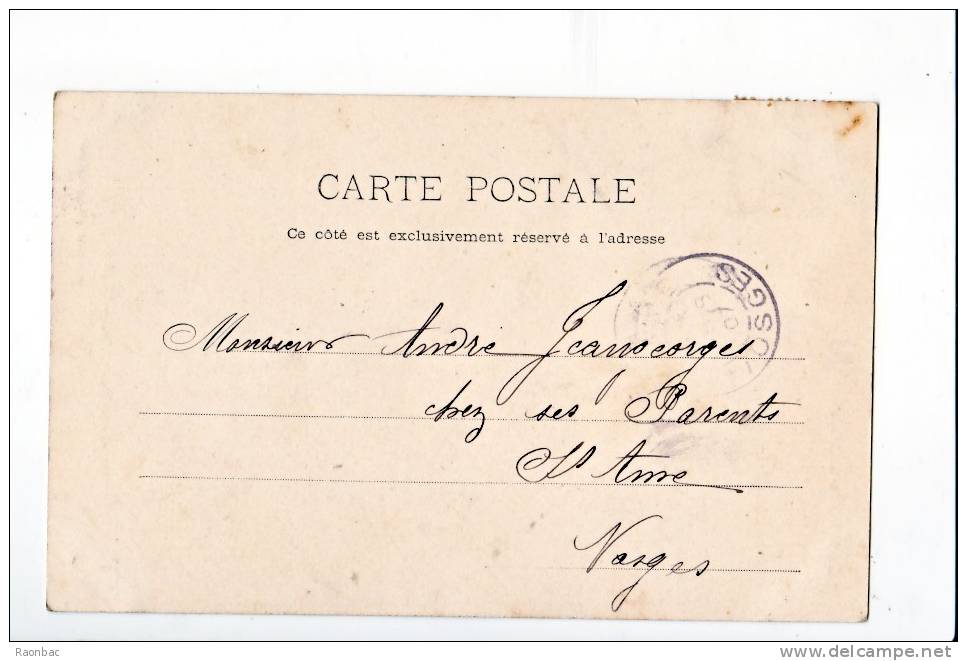 CARTE POSTALE
Ce côté est exclusivement réservé à l'adresse
VOSGES
Monsieur André Jeangeorges
chez ses Parents
St Anne
Vosges
Raonbac
delcampe.net